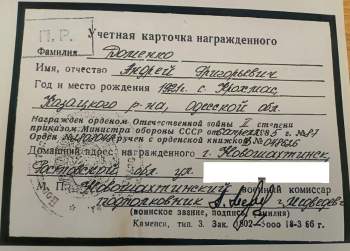 П. Р.
Учетная карточка награжденного
Фамилия Доменко
Имя, отчество Андрей Григорьевич
Год и место рождения 1924 г. с.
р-на, Одесской обл.
Награжден орденом Отечественной войны II степени
приказом Министра обороны СССР от 85 г. №
Орден № вручен с орденской книжкой №
Домашний адрес награжденного г. Новошахтинск,
Ростовской обл. ул.
М. П. Новошахтинский военный комиссар
подполковник Медведев
(воинское звание, подпись, фамилия)
Каменск, тип. 3. Зак. 1802—5000 18-3 66 г.